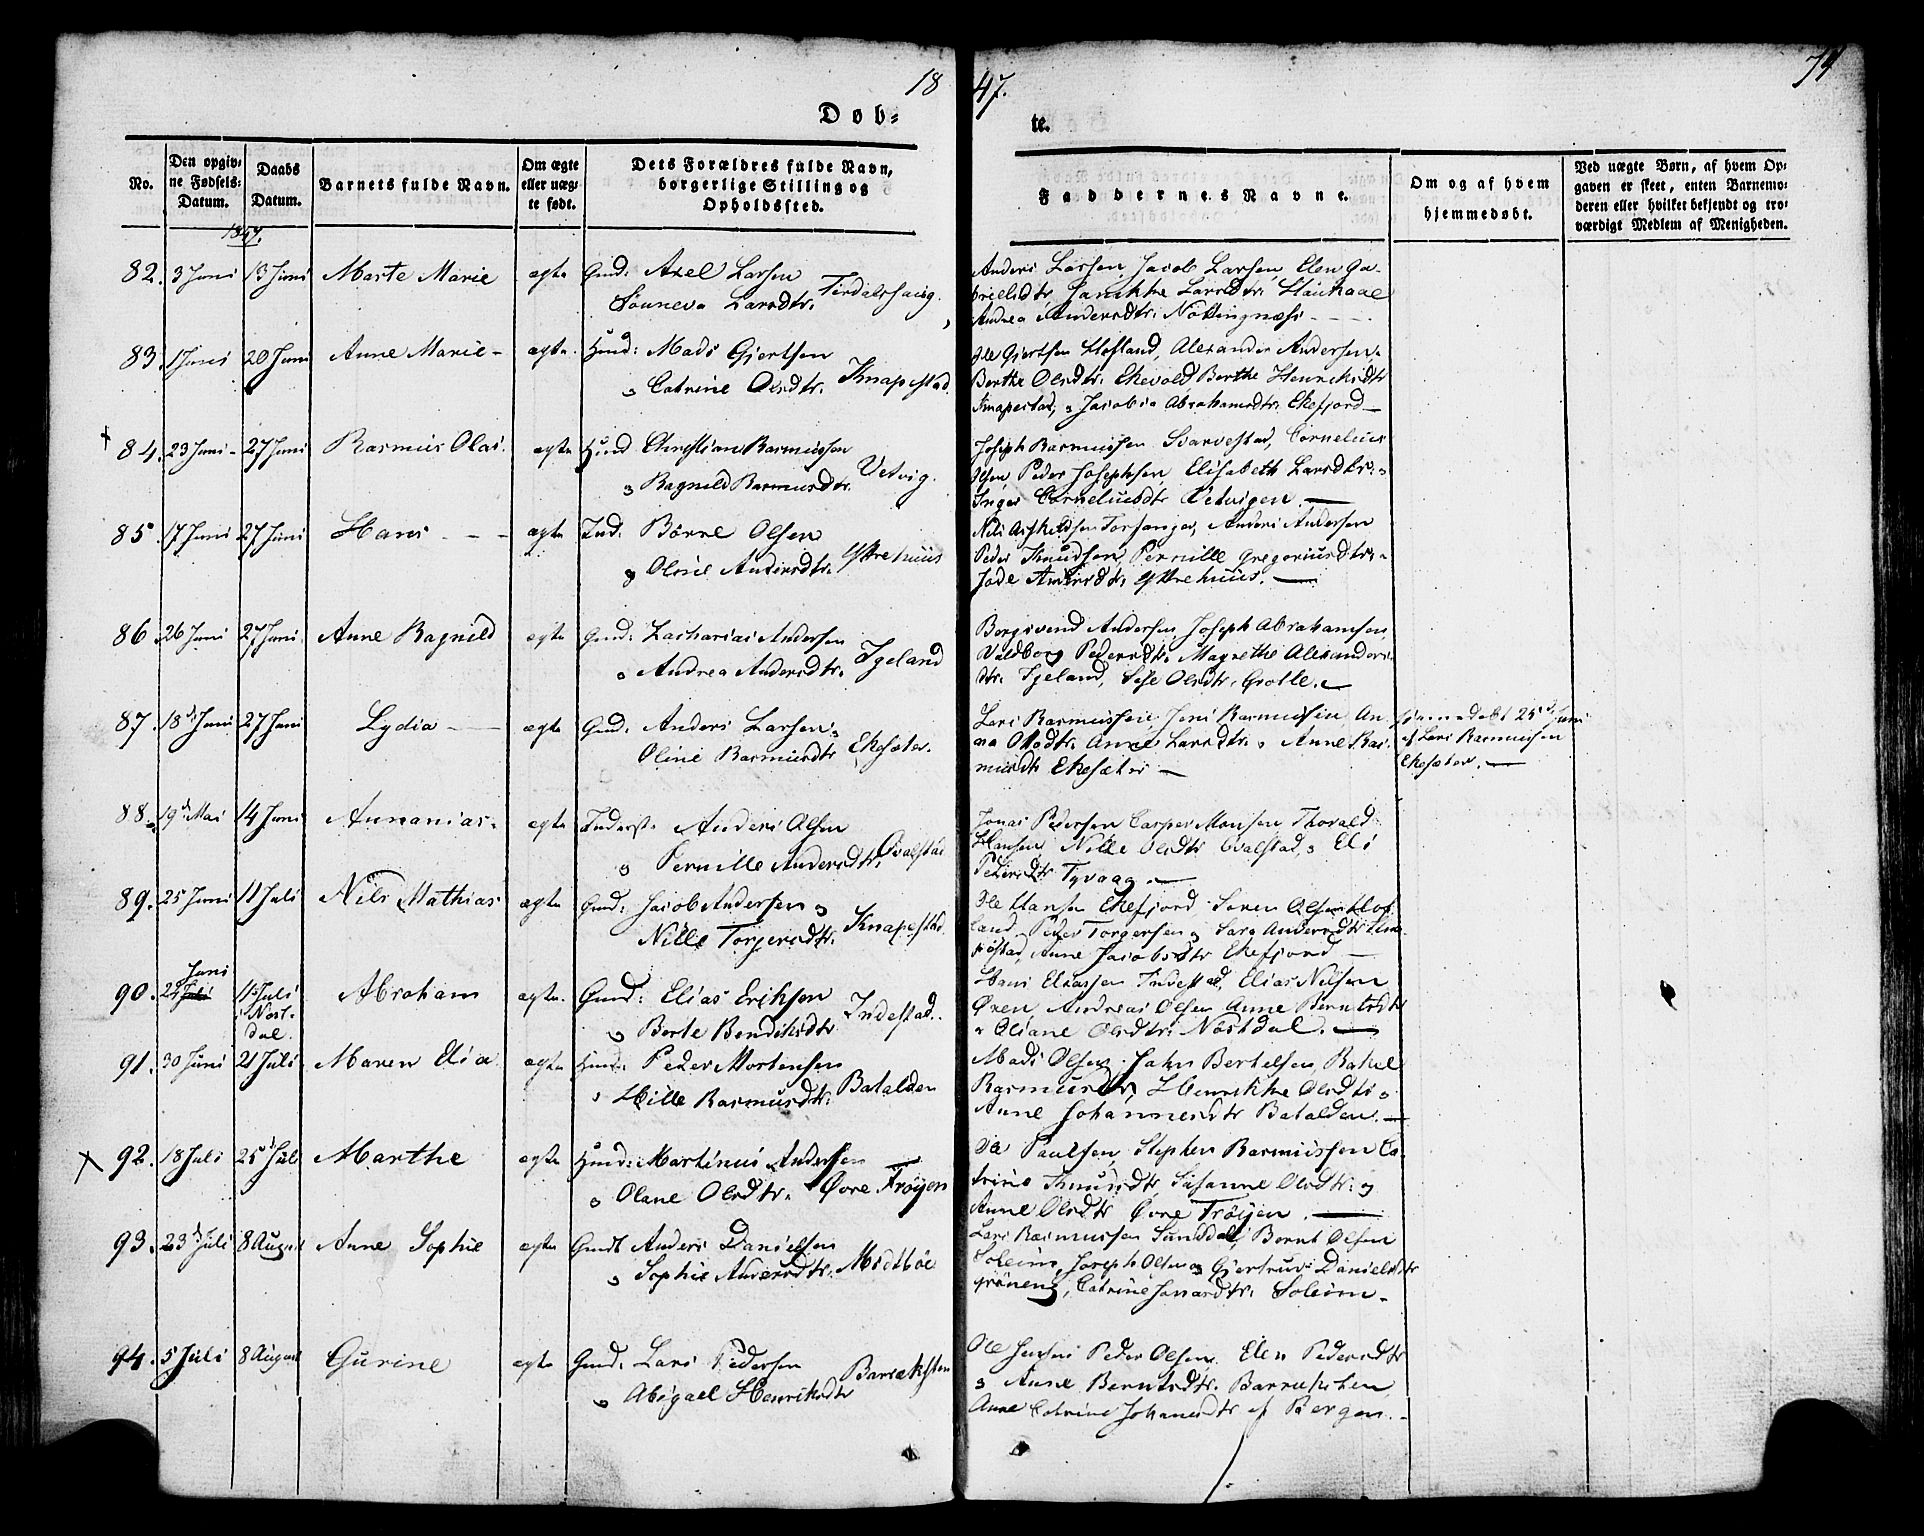 18 47.
74
Døb- te.
No.
Den opgiv-
ne Fødsels-
Datum.
Daabs
Datum.
Barnets fulde Navn.
Om ægte
eller uæg-
te født.
Dets Forældres fulde Navn,
borgerlige Stilling og
Opholdssted.
Faddernes Navne.
Om og af hvem
hjemmedøbt.
Ved uægte Børn, af hvem Op-
gaven er skeet, enten Barnemo-
deren eller hvilket bekjendt og tro-
værdigt Medlem af Menigheden.
1847.
82. 3 Juni 13 Juni Marte Marie ægte Gmd: Axel Larsen
Sønneva Larsdtr.
Anders Larsen, Jacob Larsen, Elen Ga-
brielsdtr, Jannikke Larsdtr.
Andrea Andersdtr.
83. 1 Juni 20 Juni Anne Marie - ægte Huusd: Mads Gjertsen
Catrine Olsdtr. Knapestad
Ole Gjertsen Hofland, Alexander Andersen,
Berthe Olsdtr. Ekevold, Berthe Henriksdtr
Knapestad, Jacobia Abrahamsdtr. Ekefjord
84. 23 Juni - 27 Juni Rasmus Olai ægte Huusd Christian Rasmussen
Ragnild Rasmusdtr. Vetvig.
Joseph Rasmussen Svarvestad, Cornelius
Olsen, Peder Josephsen, Elisabeth Larsdtr.
Inger Corneliusdtr Vetvigen.
85. 17 Juni 27 Juni Hans - - - ægte Ind: Børre Olsen
Oline Andersdtr. Yttrehuus
Nils Torsanger, Anders Andersen
Peder Knudsen, Pernille Gregoriusdtr.
Andersdtr. Yttrehuus.
86. 26 Juni 27 Juni Anne Ragnild ægte Gmd: Zacharias Andersen
Andrea Andersdtr. Igeland
Borgsvend Andersen, Joseph Abrahamsen,
Valdborg Pedersdtr. Magrethe Alexanders-
dtr. Igeland, Olsdtr. Grotle.
87. 18d Juni 27 Juni Lydia ægte Gmd: Anders Larsen
Oline Rasmusdtr Ekesæter.
Lars Rasmussen, Jens Rasmussen, An-
na Olsdtr. Anne Larsdtr. Anne Ras-
musdtr Ekesæter
hjemmedøbt 25d Juni
af Lars Rasmussen
Ekesæter.
88. 19d Mai 14 Juni Annanias. ægte Inderst: Anders Olsen
Pernille Andersdtr. Qvalstad
Jonas Pedersen Casper Monsen Thorald
Hansen, Nille Olsdtr Qvalstad, Eli
Pedersdtr Tyvaag.
89. 25 Juni 11 Juli Nils Mathias ægte Gmd: Jacob Andersen
Nille Torgersdtr. Knapestad.
Ole Hansen Ekefjord Søren Olsen Hof
land, Peder Torgersen Sara Andersdtr Kna-
pestad, Anne Jacobsdtr Ekefjord
90. Juni
11 Juli
i Nord-
dal.
Abraham ægte. Gmd: Elias Eriksen
Berte Bendiksdtr Indestad.
Hans Eliassen Indestad, Elias Nilsen
Øren, Andreas Olsen Anne Berntsdtr
Oliane Olsdtr. Nordal.
91. 30 Juni 21 Juli Maren Elia ægte Huusd: Peder Mortensen
Hille Rasmusdtr. Batalden
Mads Olsen, John Bertelsen, Rakel
Rasmusdtr, Henrikke Olsdtr
Anne Johannesdtr Batalden.
92. 18 Juli 25 Juli Marthe ægte Huusd: Martinus Andersen
Olane Olsdtr. Øvre Frøyen
Ole Paulsen, Stephen Rasmussen Ca-
trine Knudsdtr, Susanne Olsdtr. og
Anne Olsdtr Øvre Frøyen.
93. 23d Juli 8 August Anne Sophie ægte Gmdt Anders Danielsen
Sophie Andersdtr. Midtbøe
Lars Rasmussen Sunddal, Bernt Olsen
Soleim, Joseph Olsen Gjertrud Danielsdtr
Grøneng, Catrine Jonasdtr. Soleim
94. 5 Juli 8 August Gurine ægte Gmd: Lars Pedersen
Abigael Henriksdtr Barrekstein
Ole Jensen Peder Olsen, Elen Pedersdtr
Anne Berntsdtr. Barreksten,
Anne Catrine Johansdtr af Bergen.